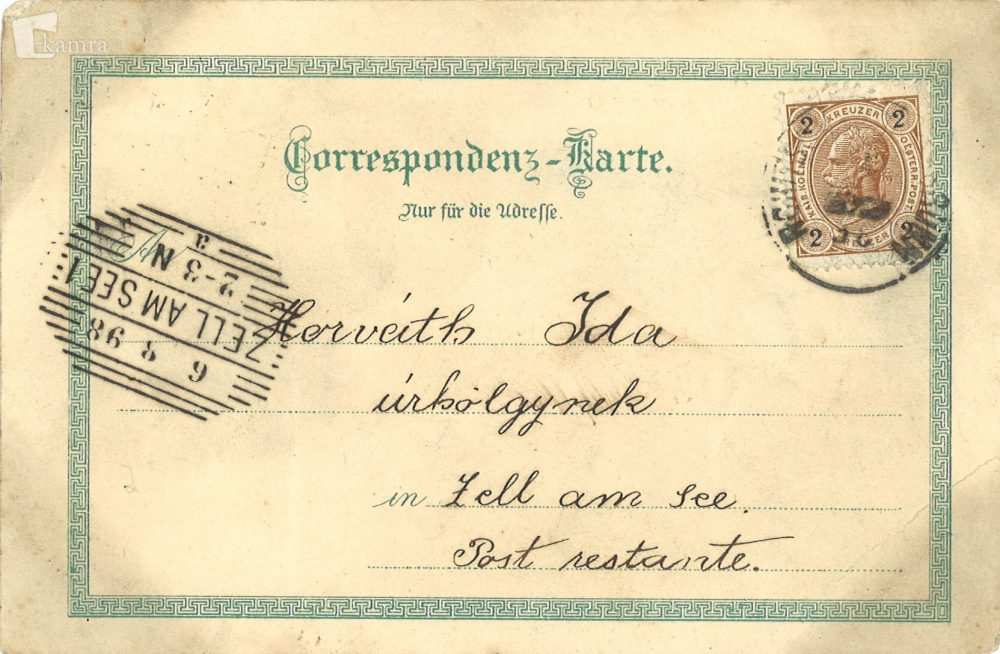 kamra
Correspondenz-Karte.
Nur für die Adresse.
2 KREUZER 2
KAIS. KOENIGL. OESTERR. POST
2 2
ZELL AM SEE 1
6 8 98
2-3 N
a
Horváth Ida
úrhölgynek
in Zell am See.
Post restante.